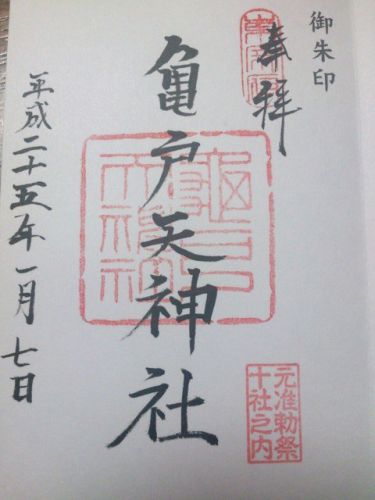 御朱印
奉拝
亀戸天神社
元准勅祭
十社之内
平成二十五年一月七日